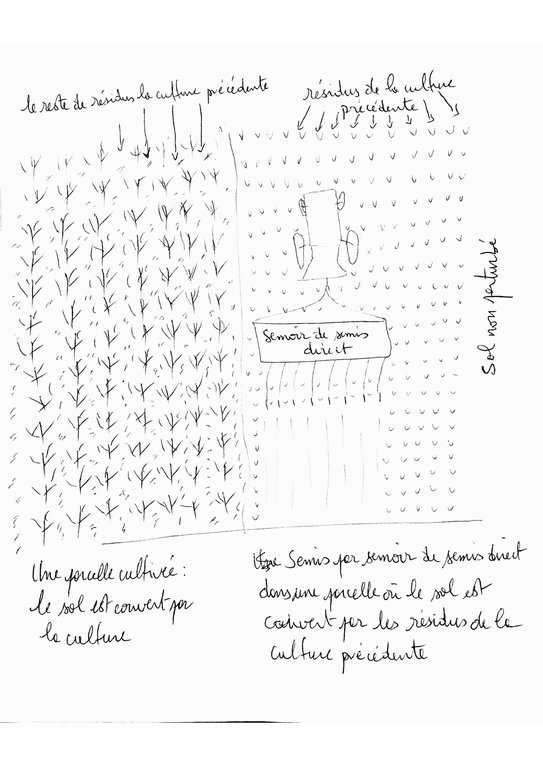 le reste de résidus la culture précédente
résidus de la culture
précédente
Sol non perturbé
Semoir de semis
direct
Une parcelle cultivée :
le sol est couvert par
la culture
Semis par semoir de semis direct
dans une parcelle où le sol est
couvert par les résidus de la
culture précédente